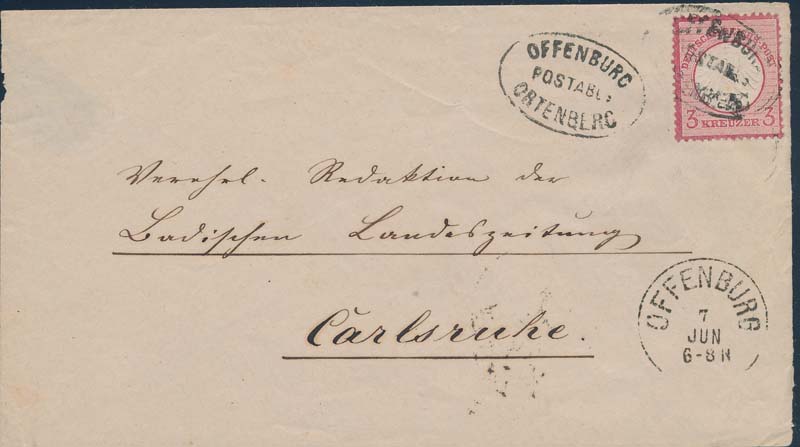 OFFENBURG
POSTABL:
ORTENBERG
DEUTSCHE REICHS-POST
3 KREUZER 3
Verehrl. Redaktion der
Badischen Landeszeitung
Carlsruhe.
OFFENBURG
7
JUN
6-8N